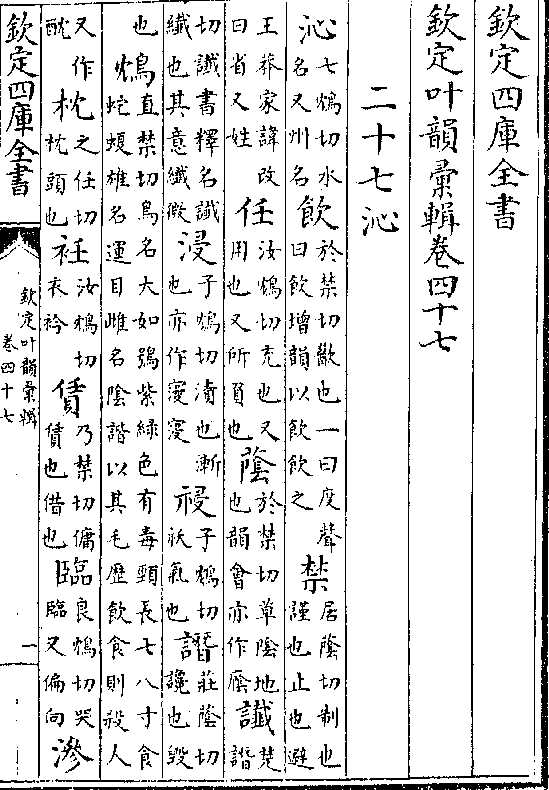 欽定四庫全書
欽定叶韻彙輯卷四十七
二十七沁
沁七鴆切水名又州名飲於禁切歠也一曰度聲曰飲增韻以飲飲之禁居蔭切制也謹也止也避
王莽家諱改曰省又姓任汝鴆切克也又用也又所負也蔭於禁切草陰地也韻會亦作廕讖楚譖
切讖書釋名讖纖也其意纖微浸子鴆切漬也漸也亦作寖寖祲子鴆切祅氣也譖莊蔭切讒也毀
也鴆直禁切鳥名大如鴞紫綠色有毒頸長七八寸食蛇蝮雄名運目雌名陰諧以其毛歷飲食則殺人
又作酖枕之任切枕頭也衽汝鴆切衣衿賃乃禁切傭賃也借也臨良鴆切哭臨又偏向滲
欽定四庫全書
欽定叶韻彙輯
卷四十七
一